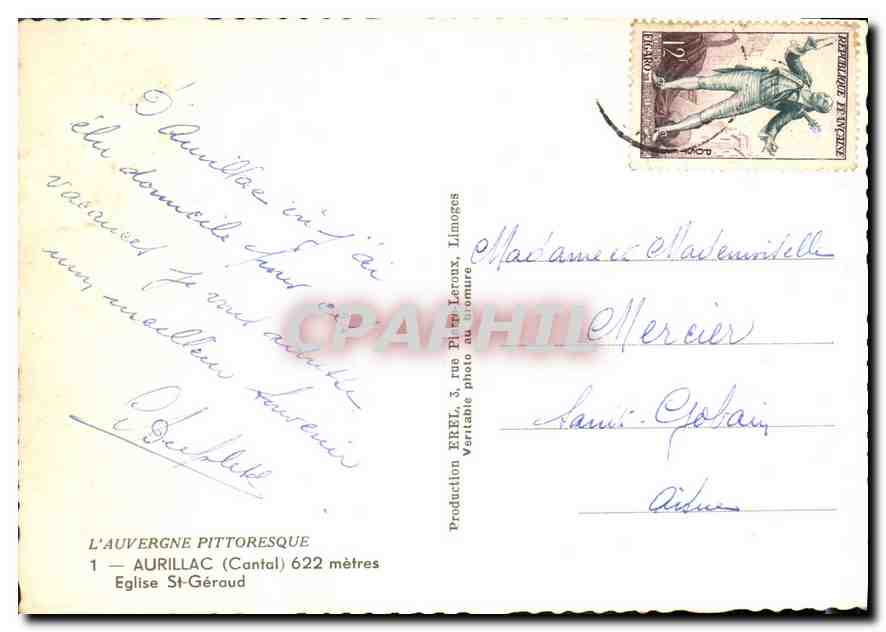 D'Aurillac où j'ai
élu domicile pour ces
vacances je vous adresse
mon meilleur souvenir
L'AUVERGNE PITTORESQUE
1 — AURILLAC (Cantal) 622 mètres
Eglise St-Géraud
Production EREL, 3, rue Pierre-Leroux, Limoges
Veritable photo au bromure
12F
FIGARO
POSTES
REPUBLIQUE FRANÇAISE
Madame et Mademoiselle
Mercier
Saint-Gobain
Aisne
CPAPHIL